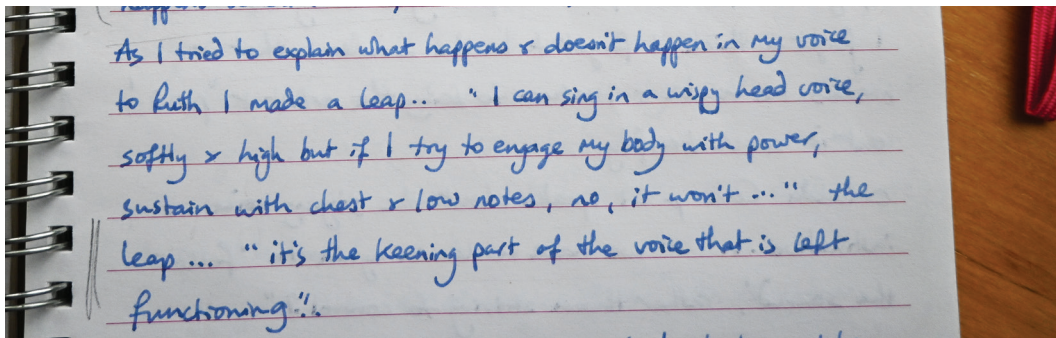 As I tried to explain what happens & doesn't happen in my voice
to Ruth I made a leap.. "I can sing in a wispy head voice,
softly & high but if I try to engage my body with power,
sustain with chest & low notes, no, it won't ..." the
leap ... "it's the keening part of the voice that is left
functioning".